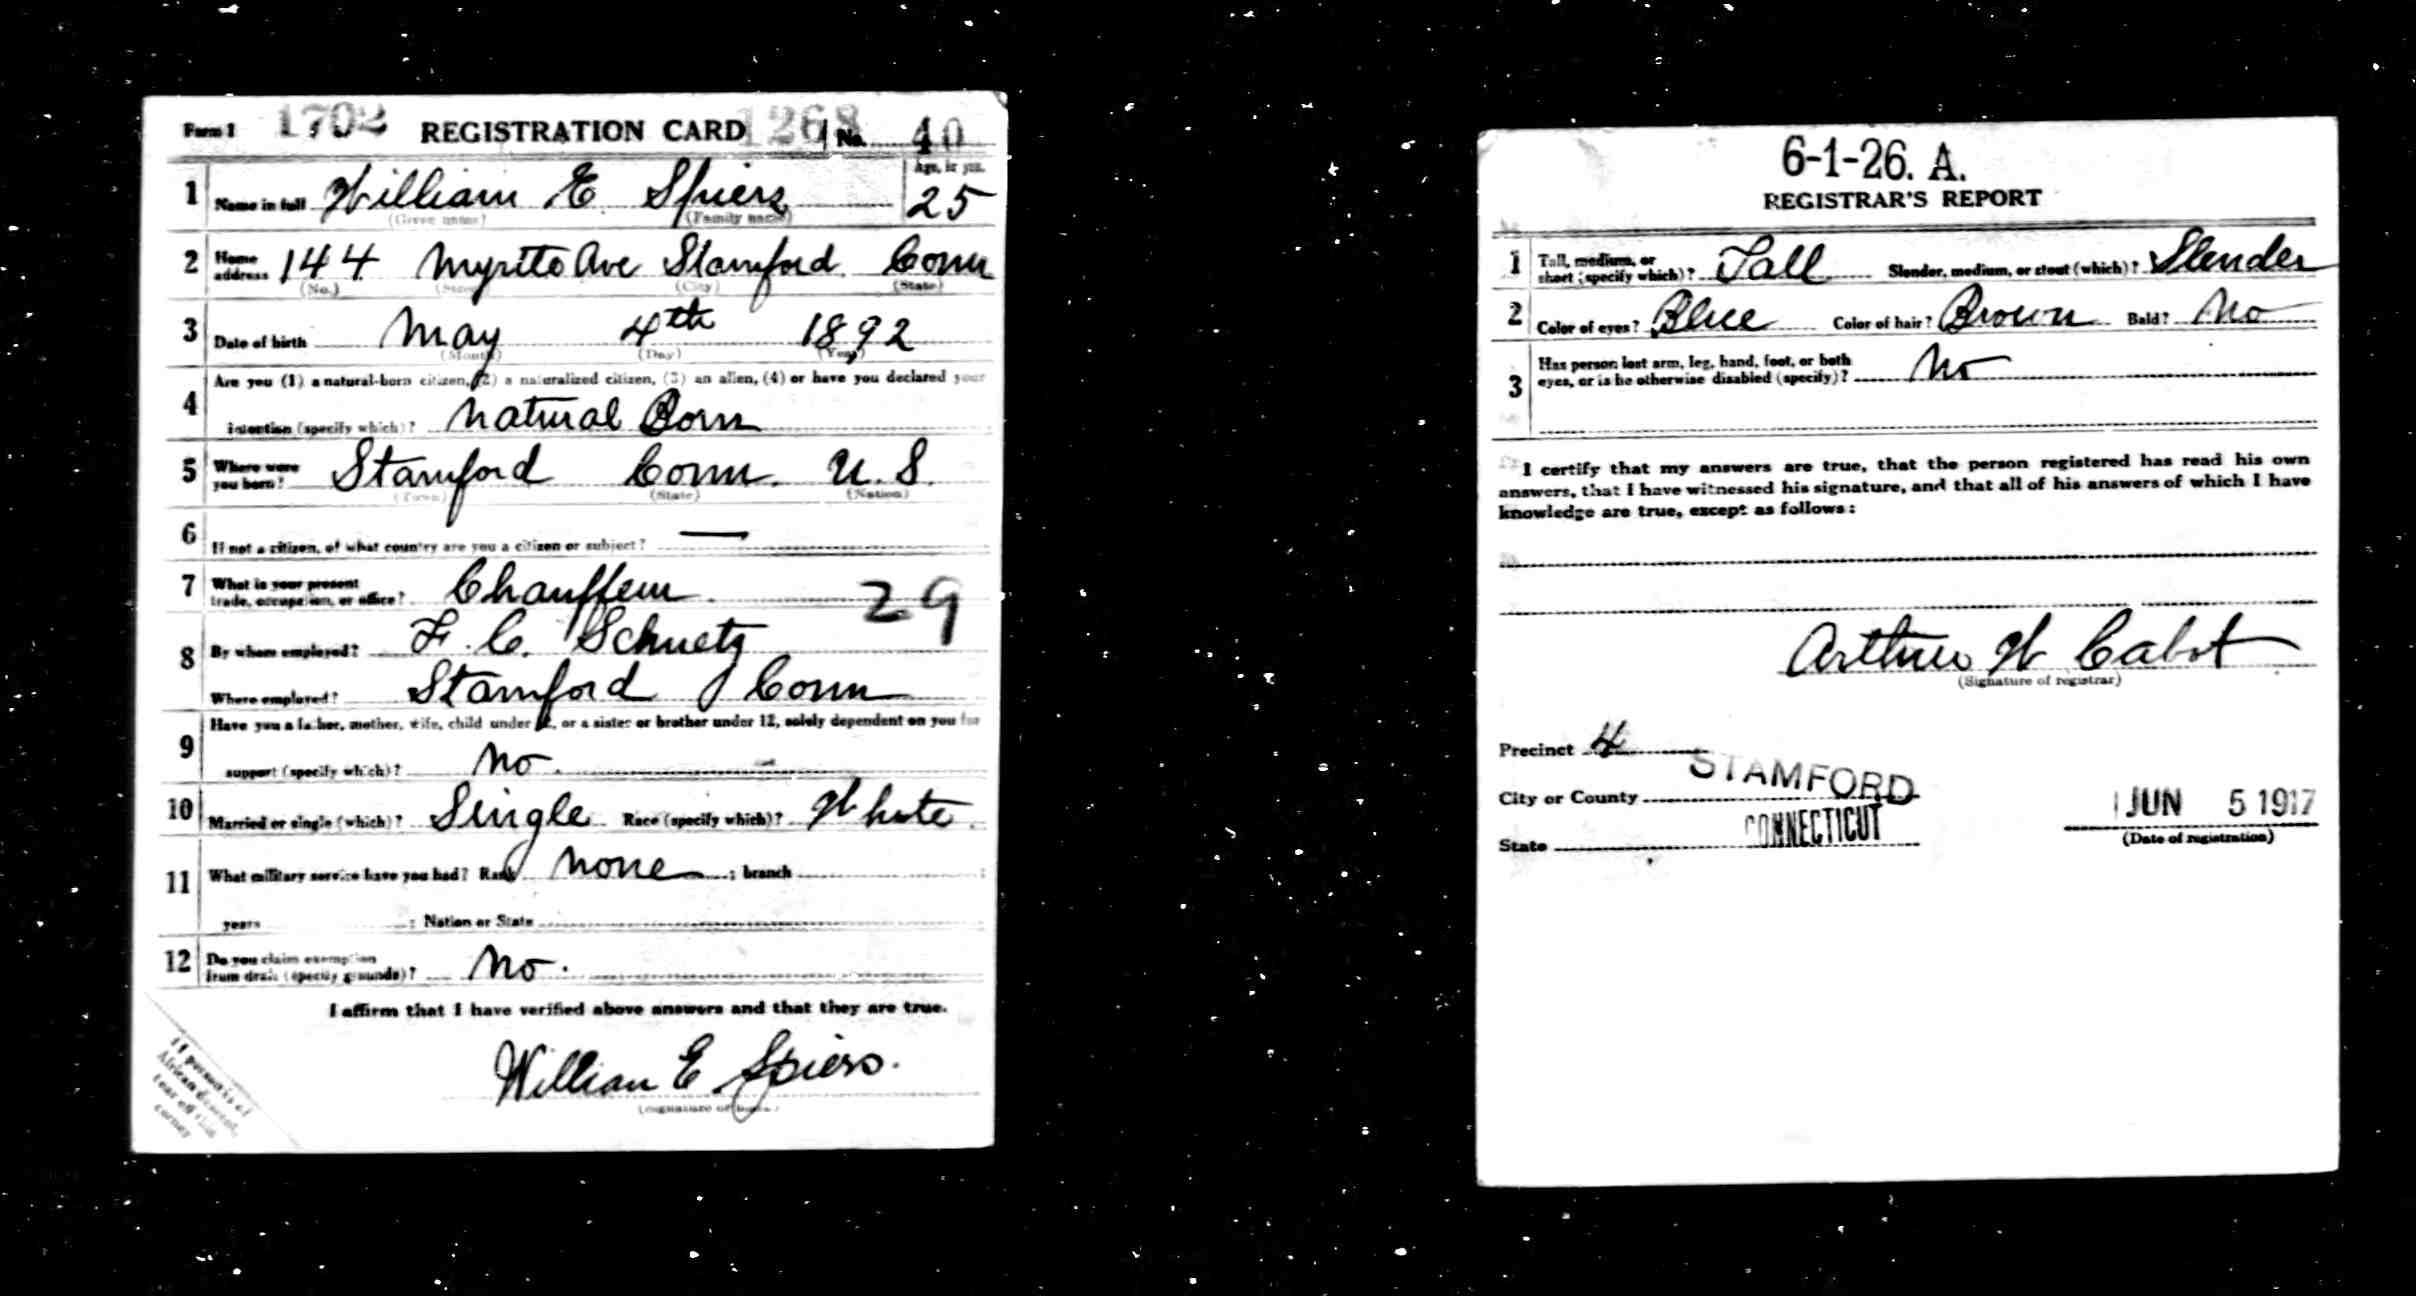 Form 1 1702 REGISTRATION CARD 1268 No. 40
1 Name in full William E. Spiers Age, in yrs. 25
(Given name) (Family name)
2 Home address 144 Myrtle Ave Stamford Conn
(No.) (Street) (City) (State)
3 Date of birth May 4th 1892
(Month) (Day) (Year)
4 Are you (1) a natural-born citizen, (2) a naturalized citizen, (3) an alien, (4) or have you declared your
intention (specify which)? Natural Born
5 Where were you born? Stamford Conn. U.S.
(Town) (State) (Nation)
6 If not a citizen, of what country are you a citizen or subject? —
7 What is your present trade, occupation, or office? Chauffeur. 29
8 By whom employed? F. C. Schuetz
Where employed? Stamford Conn
9 Have you a father, mother, wife, child under 12, or a sister or brother under 12, solely dependent on you for
support (specify which)? No.
10 Married or single (which)? Single Race (specify which)? White.
11 What military service have you had? Rank None ; branch ;
years ; Nation or State
12 Do you claim exemption from draft (specify grounds)? No.
I affirm that I have verified above answers and that they are true.
William E Spiers.
(Signature or mark)
If person is of
African descent,
tear off this
corner
6-1-26. A.
REGISTRAR'S REPORT
1 Tall, medium, or short (specify which)? Tall Slender, medium, or stout (which)? Slender
2 Color of eyes? Blue Color of hair? Brown Bald? No
3 Has person lost arm, leg, hand, foot, or both
eyes, or is he otherwise disabled (specify)? No
I certify that my answers are true, that the person registered has read his own
answers, that I have witnessed his signature, and that all of his answers of which I have
knowledge are true, except as follows:
Arthur W Cabot
(Signature of registrar)
Precinct 4
City or County STAMFORD
State CONNECTICUT
JUN 5 1917
(Date of registration)